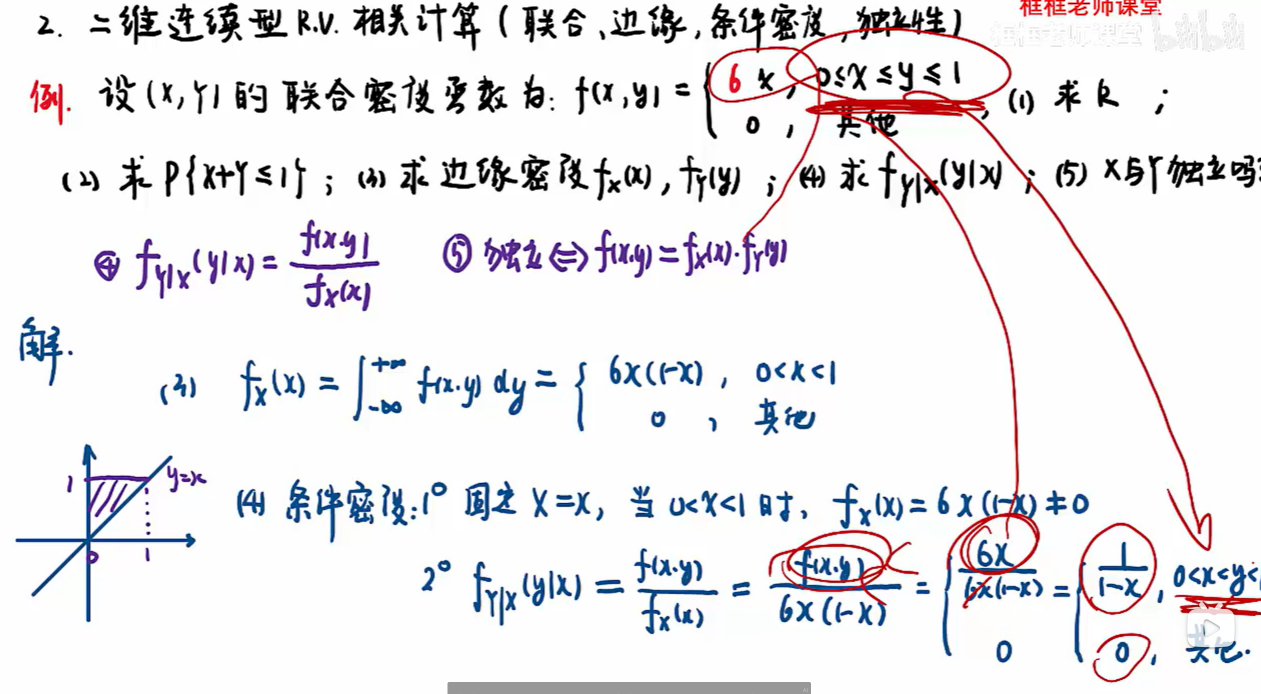 框框老师课堂
2. 二维连续型 R.V. 相关计算 ( 联合、边缘, 条件密度, 独立性)
框框老师课堂 bilibili
例. 设(X,Y)的联合密度函数为: f(x,y) = { 6x, 0≤x≤y≤1 , (1) 求 k ;
0, 其他
(2) 求 P{X+Y≤1} ; (3) 求边缘密度 fX(x), fY(y) ; (4) 求 fY|X(y|x) ; (5) X与Y独立吗
④ fY|X(y|x) = f(x.y) / fX(x) ⑤ 独立 ⇔ f(x.y) = fX(x)·fY(y)
解.
(3) fX(x) = ∫_{-∞}^{+∞} f(x.y) dy = { 6x(1-x) , 0<x<1
0 , 其他
1 y=x 0 1
(4) 条件密度: 1° 固定 X=x, 当 0<x<1 时, fX(x) = 6x(1-x) ≠ 0
2° fY|X(y|x) = f(x.y) / fX(x) = f(x.y) / 6x(1-x) = { 6x / 6x(1-x) = { 1 / 1-x , 0<x<y<
0 0 , 其他.